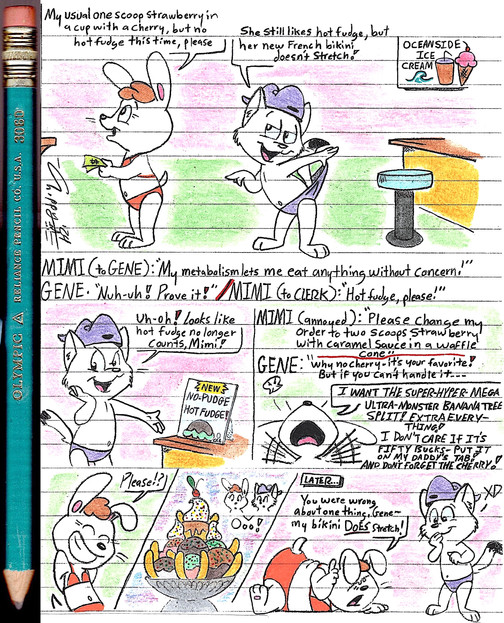 My usual one scoop strawberry in
a cup with a cherry, but no
hot fudge this time, please
She still likes hot fudge, but
her new French bikini
doesn't stretch!
OCEANSIDE
ICE
CREAM
OLYMPIC RELIANCE PENCIL CO. U.S.A. 3030
'24
MIMI (to GENE): "My metabolism lets me eat anything without concern!"
GENE: "Nuh-uh! Prove it!" / MIMI (to CLERK): "Hot fudge, please!"
Uh-oh! Looks like
hot fudge no longer
counts, Mimi!
NEW
NO-PUDGE
HOT FUDGE!
MIMI (annoyed): "Please change my
order to two scoops strawberry
with caramel sauce in a waffle
cone"
GENE: "Why no cherry-it's your favorite!
But if you can't handle it---
I WANT THE SUPER-HYPER-MEGA
ULTRA-MONSTER BANANA TREE
SPLIT! EXTRA EVERY-
THING!
I DON'T CARE IF IT'S
FIFTY BUCKS-PUT IT
ON MY DADDY'S TAB!
AND DON'T FORGET THE CHERRY!
Please!?
Ooo!
LATER...
You were wrong
about one thing, Gene-
my bikini DOES stretch!
XD